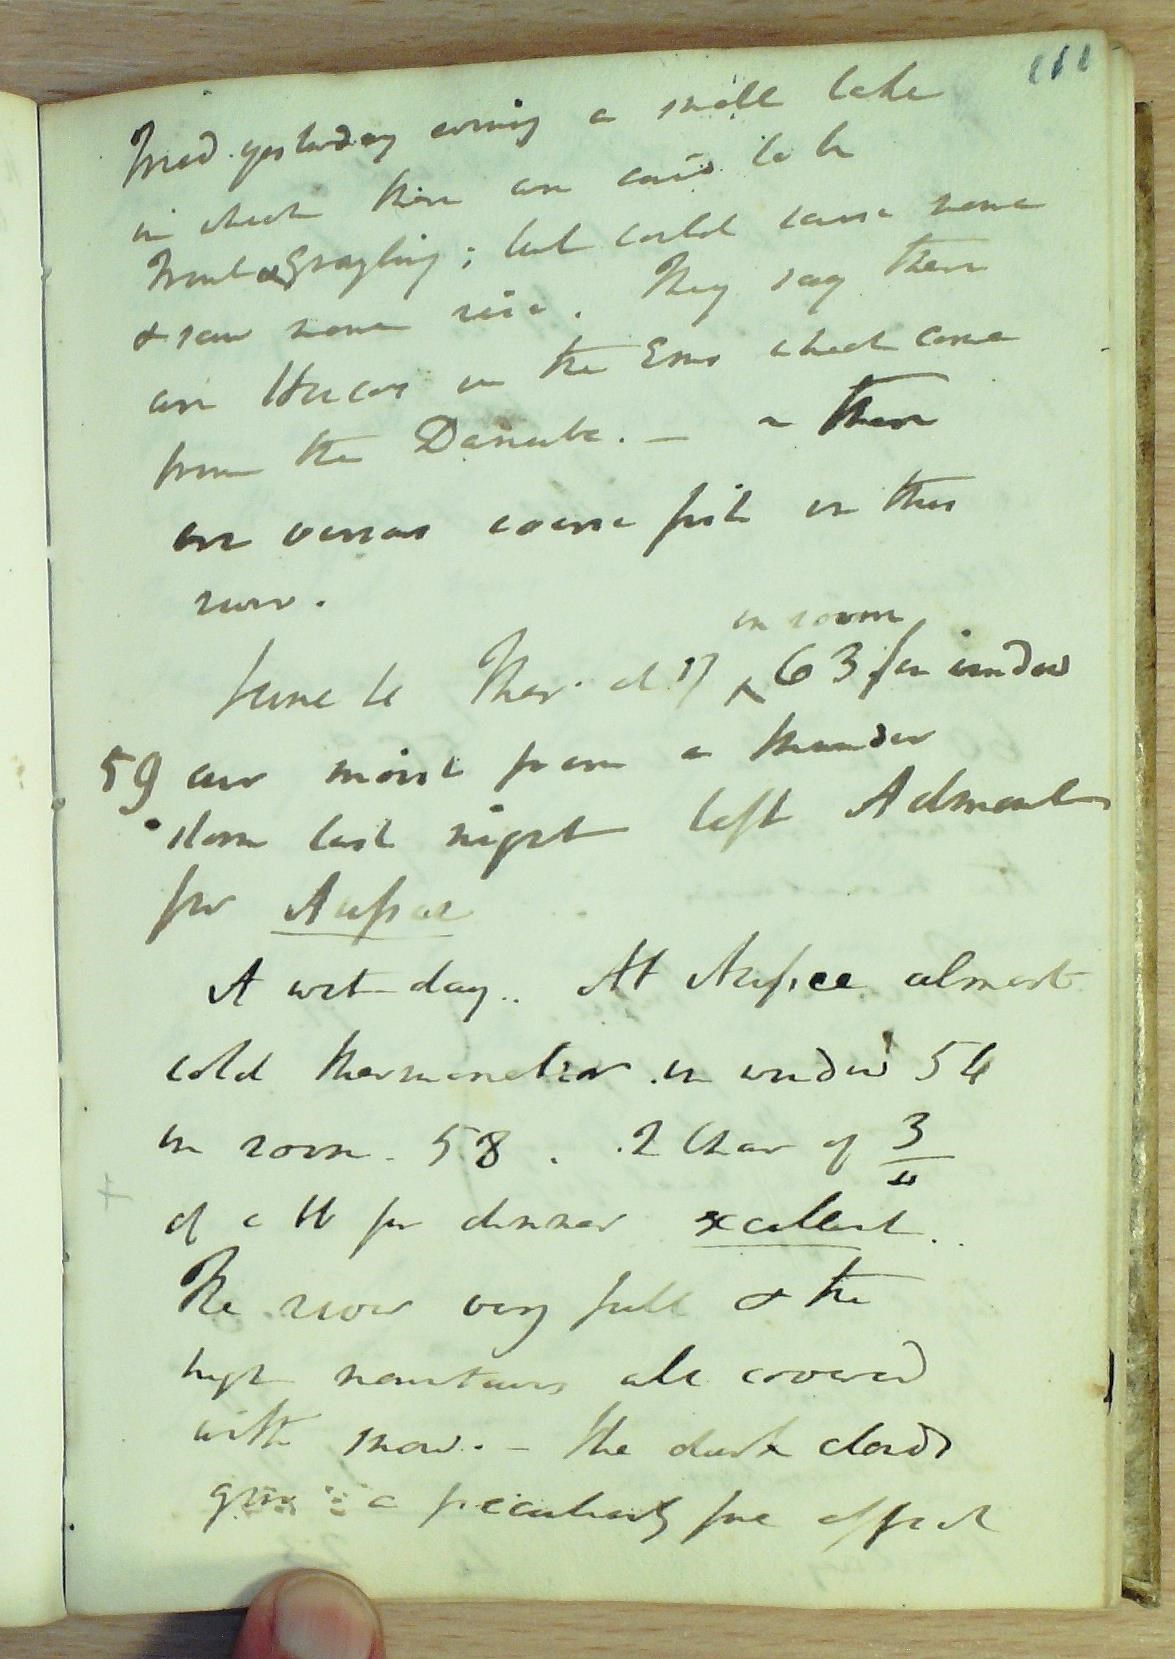 111
Tried yesterday evening a small lake
in which there are said to be
Trout & Grayling; but could raise none
& saw none rise. They say there
are Hucos in the Ens which come
from the Danube. — there
are various coarse fish in this
river.
in room
June 16 Ther. at 7 ^ 63 for window
59 air moist from a thunder
storm last night left Admont
for Aussee
A wet day.. At Aussee almost
cold thermometer in window 54
in room 58. 2 Char of 3/4
of a lb for dinner excellent..
The river very full & the
high mountains all covered
with snow. – the dark clouds
give a peculiarly fine effect